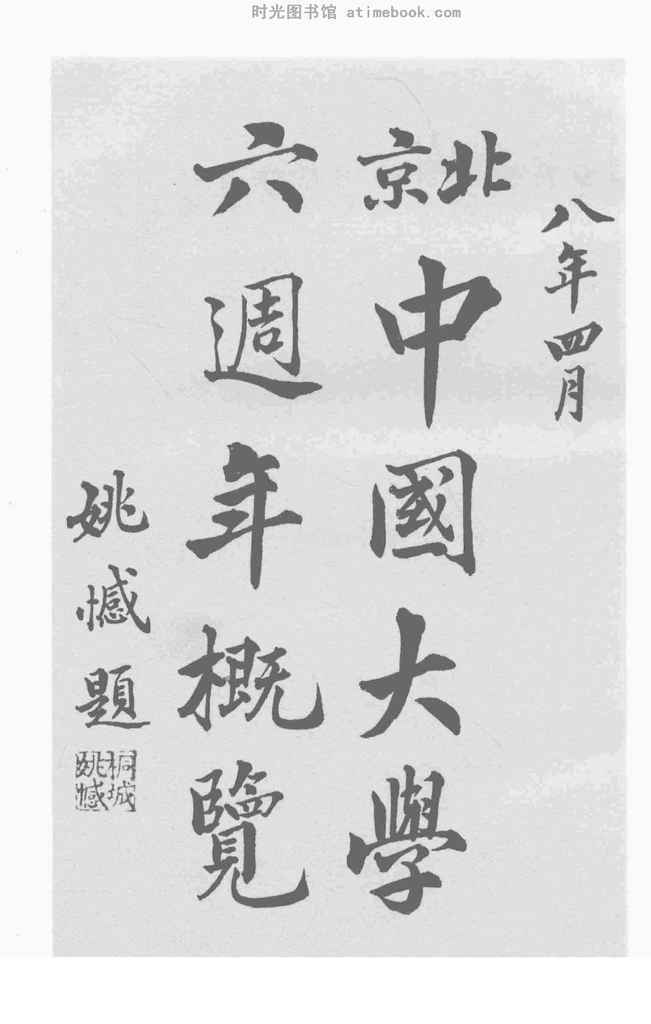 时光图书馆 atimebook.com
八年四月
北京
中國大學
六週年概覽
姚憾題
桐城
姚憾